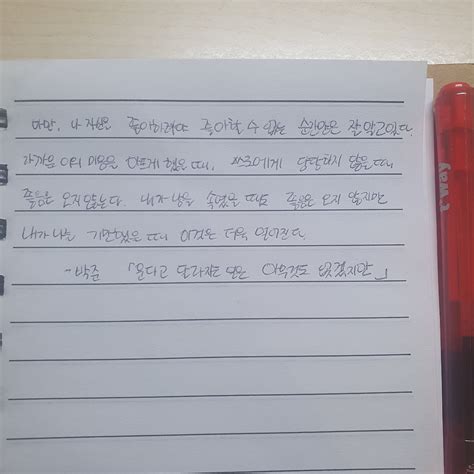 다만, 나 자신을 좋아하려야 좋아할 수 없는 순간만은 잘 알고있다.
가까운 이의 마음을 아프게 했을 때, 스스로에게 당당하지 않을 때
졸음은 오지 않는다. 내가 남을 속였을 때도 졸음은 오지 않지만
내가 나를 기만했을 때 이것은 더욱 멀어진다.
-박준 「운다고 달라지는 일은 아무것도 없겠지만」
t'way